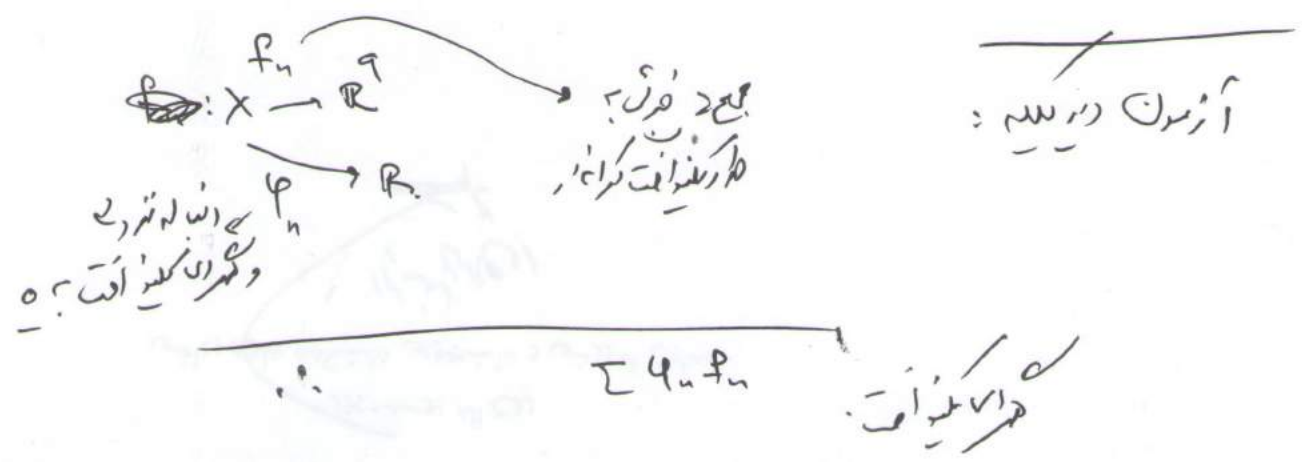 آزمون دیریکله :
f_n : X → ℝ^q
مجموع جزئی
بطور یکنواخت کراندار
φ_n → ℝ
دنباله نزولی
و همگرای یکنواخت به 0
∴ Σ φ_n f_n همگرای یکنواخت است.